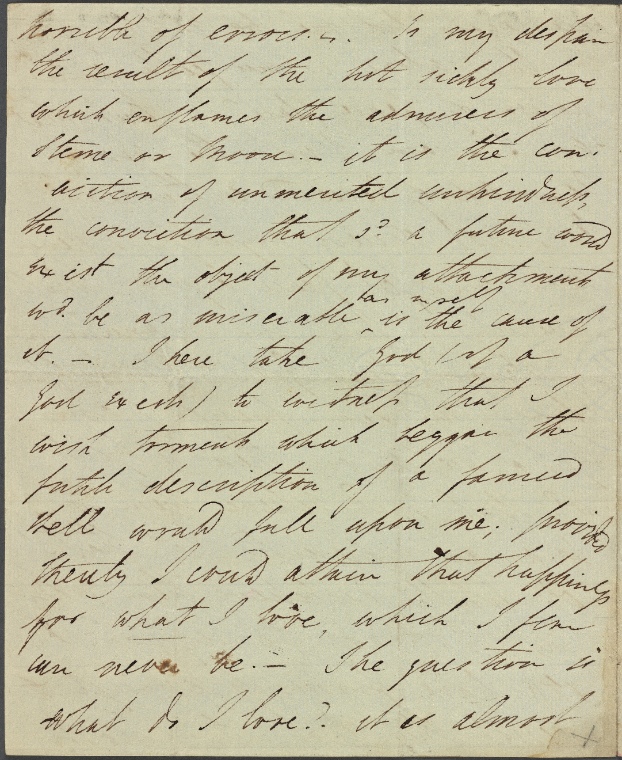 horrible of errors.—. Is my despair
the result of the hot sickly love
which enflames the admirers of
Sterne or Moore.— it is the con-
viction of unmerited unkindness,
the conviction that sd. a future world
exist the object of my attachment
wd. be as miserable as myself is the cause of
it.— I here take God (if a
God exists) to witness that I
wish torments which beggar the
futile description of a fancied
hell would fall upon me; provided
thereby I could attain that happiness
for what I love, which I fear
can never be.— The question is
what do I love? it is almost